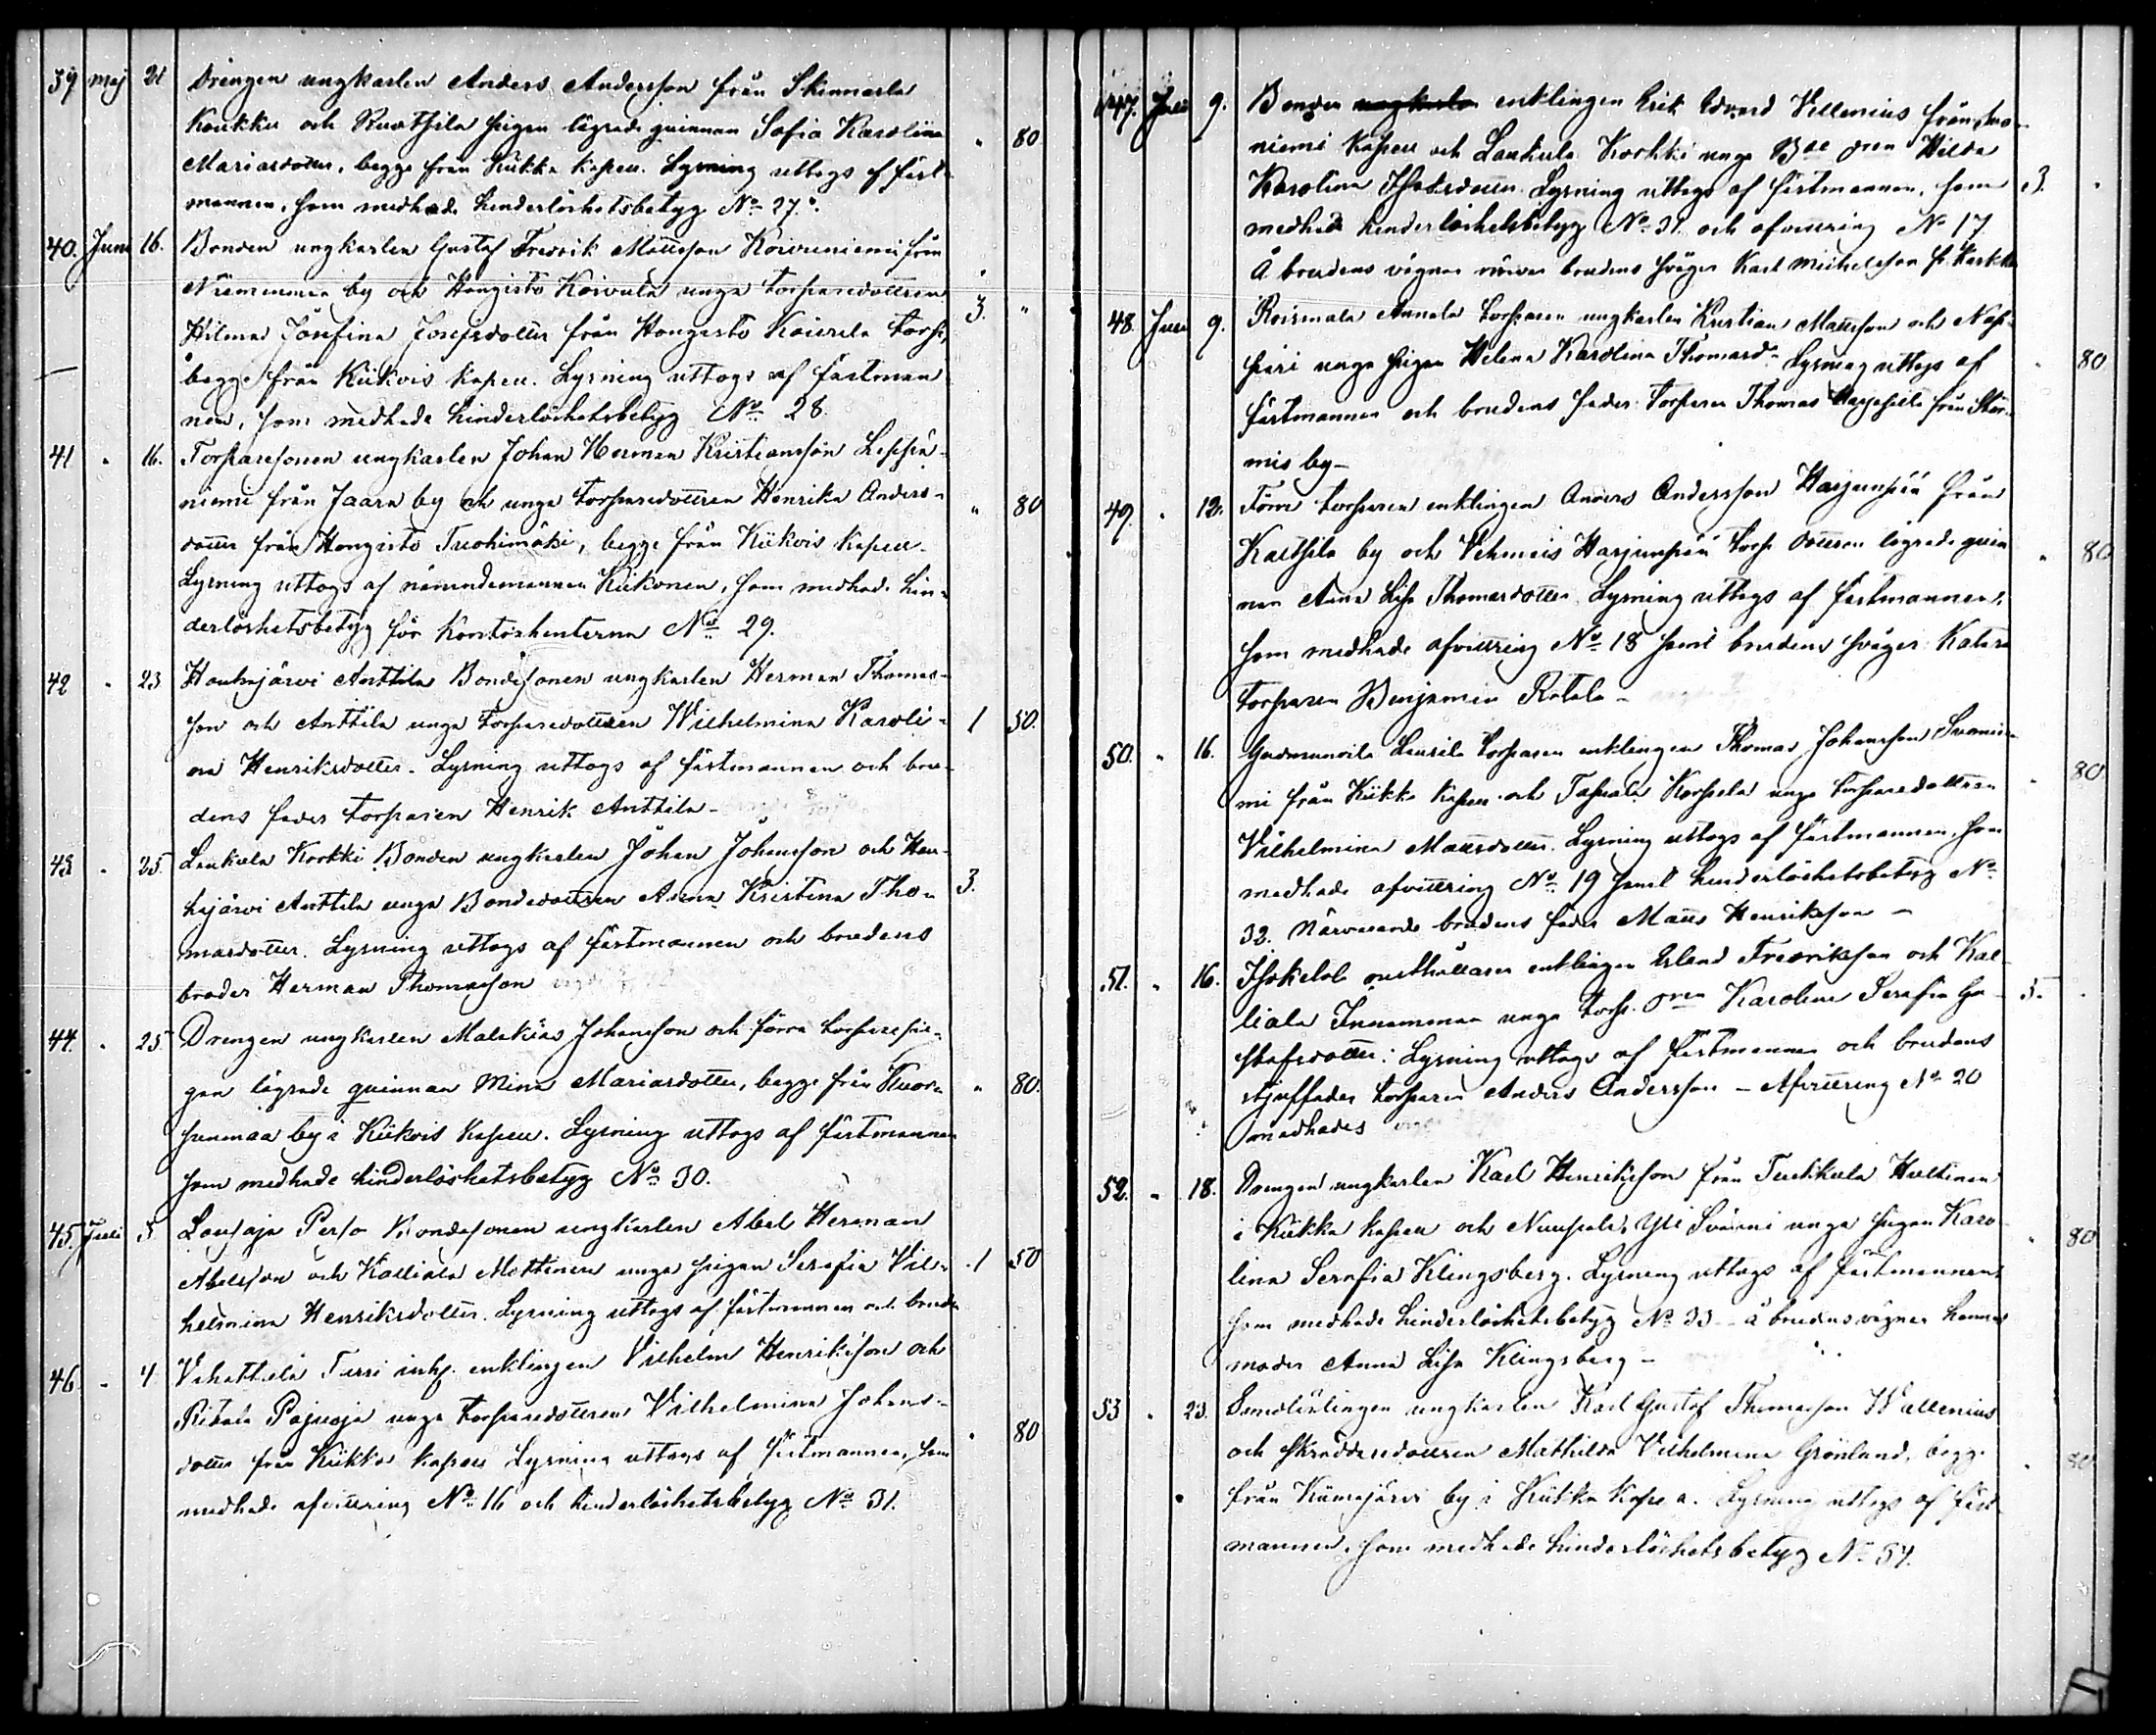 39 maj 21 Drängen ungkarlen Anders Andersson från Skinnarla
Koukku och Ruothila pigan lägrade qvinnan Sofia Karolina " 80
Mariasdotter, begge från Kiikka kapell. Lysning uttogs af fäst-
mannen, som medhade hinderlöshetsbetyg No 27.
40. Juni 16. Bonden ungkarlen Gustaf Fredrik Mattsson Koivuniemi från
Niemenmaa by och Hongisto Koivula unga torparedottren 3. "
Hilma Josefina Josefsdotter från Hongisto Koivula torp,
begge från Kiikois kapell. Lysning uttogs af fästman
nen, som medhade hinderlöshetsbetyg No 28.
41 " 16. Torparesonen ungkarlen Johan Herman Kristiansson Leppä-
niemi från Jaara by och unga torparedottren Henrika Anders- " 80
dotter från Hongisto Tuohimäki, begge från Kiikois kapell.
Lysning uttogs af nämndemannen Kiikonen, som medhade hin-
derlöshetsbetyg för kontrahenterna No 29.
42 " 23 Houhajärvi Anttila Bondesonen ungkarlen Herman Thomas-
son och Anttila unga torparedottren Wilhelmina Karoli- 1 50.
na Henriksdotter. Lysning uttogs af fästmannen och bru-
dens fader torparen Henrik Anttila -
43 " 25. Laukula Korkki Bonden ungkarlen Johan Johansson och Hou-
hajärvi Anttila unga Bondedottren Anna Kristina Tho- 3.
masdotter. Lysning uttogs af fästmannen och brudens
broder Herman Thomasson
44. " 25 Drengen ungkarlen Malakias Johansson och förra torparepi-
gan lägrade qvinnan Mina Mariasdotter, begge från Kuor- " 80.
sunmaa by i Kiikois kapell. Lysning uttogs af fästmannen
som medhade hinderlöshetsbetyg No 30.
45. Juli 3. Lousaja Perso Bondesonen ungkarlen Abel Herman
Abelsson och Kalliala Mattinen unga pigan Serafia Vil- 1 50
helmina Henriksdotter. Lysning uttogs af fästmannen och
46 " 4 Vihattula Turri inh. enklingen Vilhelm Henriksson och
Ritala Pajuoja unga torparedottren Vilhelmina Johans-
dotter från Kiikka kapell Lysning uttogs af fästmannen, som " 80
medhade afvittring No 16 och hinderlöshetsbetyg No 31.
47. Juli 9. Bonden ungkarlen enklingen Erik Edvard Villenius från
niemi kapell och Laukula Korkki unga Hilda
Karolina Isaksdotter. Lysning uttogs af fästmannen, som 3. "
medhade hinderlöshetsbetyg No 31 och afvittring No 17
Å brudens vägnar närvar brudens svåger Karl Michelsson
48. Juli 9. Roismala Annala torparen ungkarlen Kristian Mattsson och
unga pigan Helena Karolina Thomasd. Lysning uttogs af " 80
fästmannen och brudens fader torparen Thomas från
mis by -
49. " 12. Förre torparen enklingen Anders Andersson Harjunpää från
Kaltsila by och Vehmais Harjunpää torp dottren lägrade qvin " 80
nan Anna Lisa Thomasdotter. Lysning uttogs af fästmannen,
som medhade afvittring No 18 samt brudens svåger
torparen Benjamin Ritala -
50. " 16. Gudmundila Laurila torparen enklingen Thomas Johansson
mi från Kiikka kapell och Tapiala Korpela unga torparedottren " 80.
Vilhelmina Mattsdotter. Lysning uttogs af fästmannen, som
medhade afvittring No 19 samt hinderlöshetsbetyg No
32. Närvarande brudens fader Matts Henriksson -
51. " 16. enklingen Erland Fredriksson och Kal
liala Innamaa unga torp. Karolina Serafia Gu- 3. "
stafsdotter: Lysning uttogs af fästmannen och brudens
styffader torparen Anders Andersson - Afvittring No 20
medhades
52. " 18. Drengen ungkarlen Karl Henriksson från
i Kiikka kapell och Nuupala Yli unga pigan Karo " 80
lina Serafia Klingsberg. Lysning uttogs af fästmannen
som medhade hinderlöshetsbetyg No 33 - å brudens vägnar hennes
moder Anna Lisa Klingsberg -
53 " 23. ungkarlen Karl Gustaf Thomasson Wallenius
och skräddaredottren Mathilda Vilhelmina Grönlund, begge " 80
från Kiimajärvi by i Kiikka Kapell. Lysning uttogs af fäst
mannen, som medhade hinderlöshetsbetyg No 34.